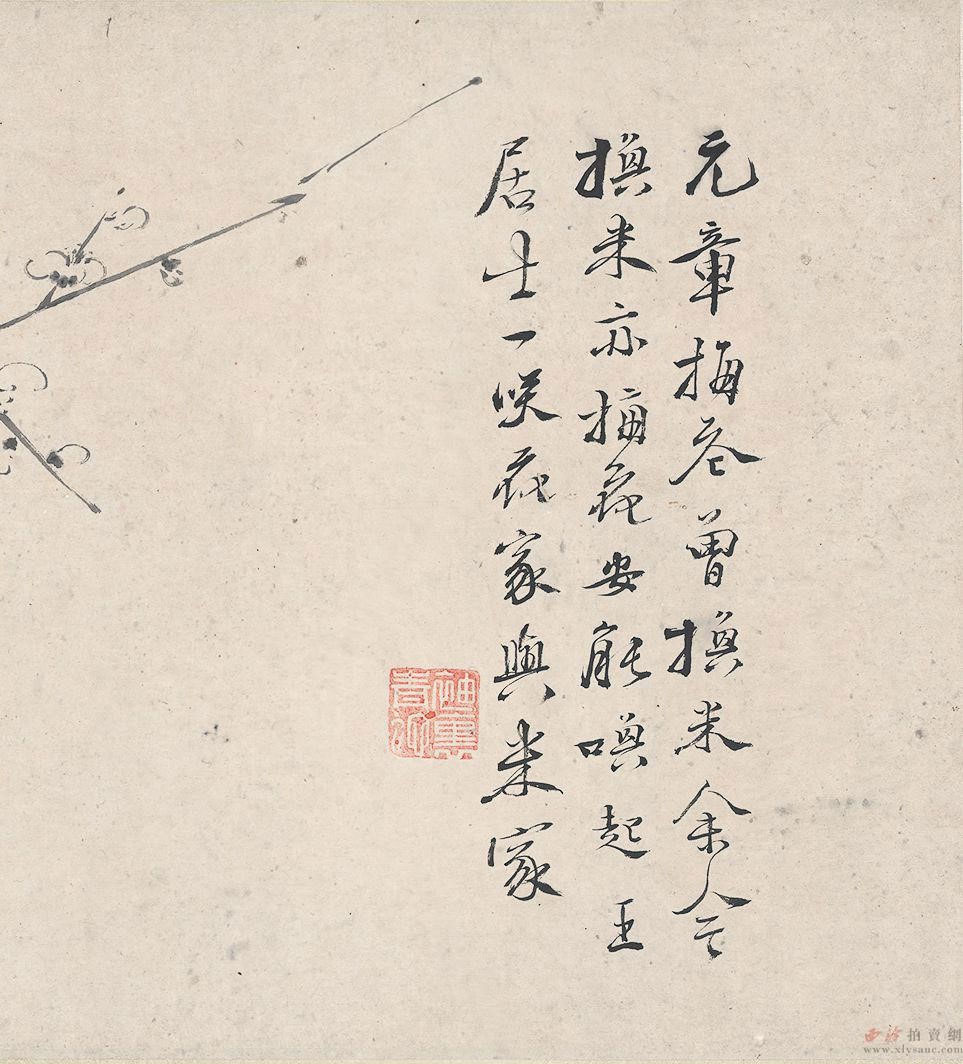 元章梅花曾換米余今
換米亦梅花安能喚起王
居士一咲花家與米家
西泠拍賣網
www.xlysauc.com